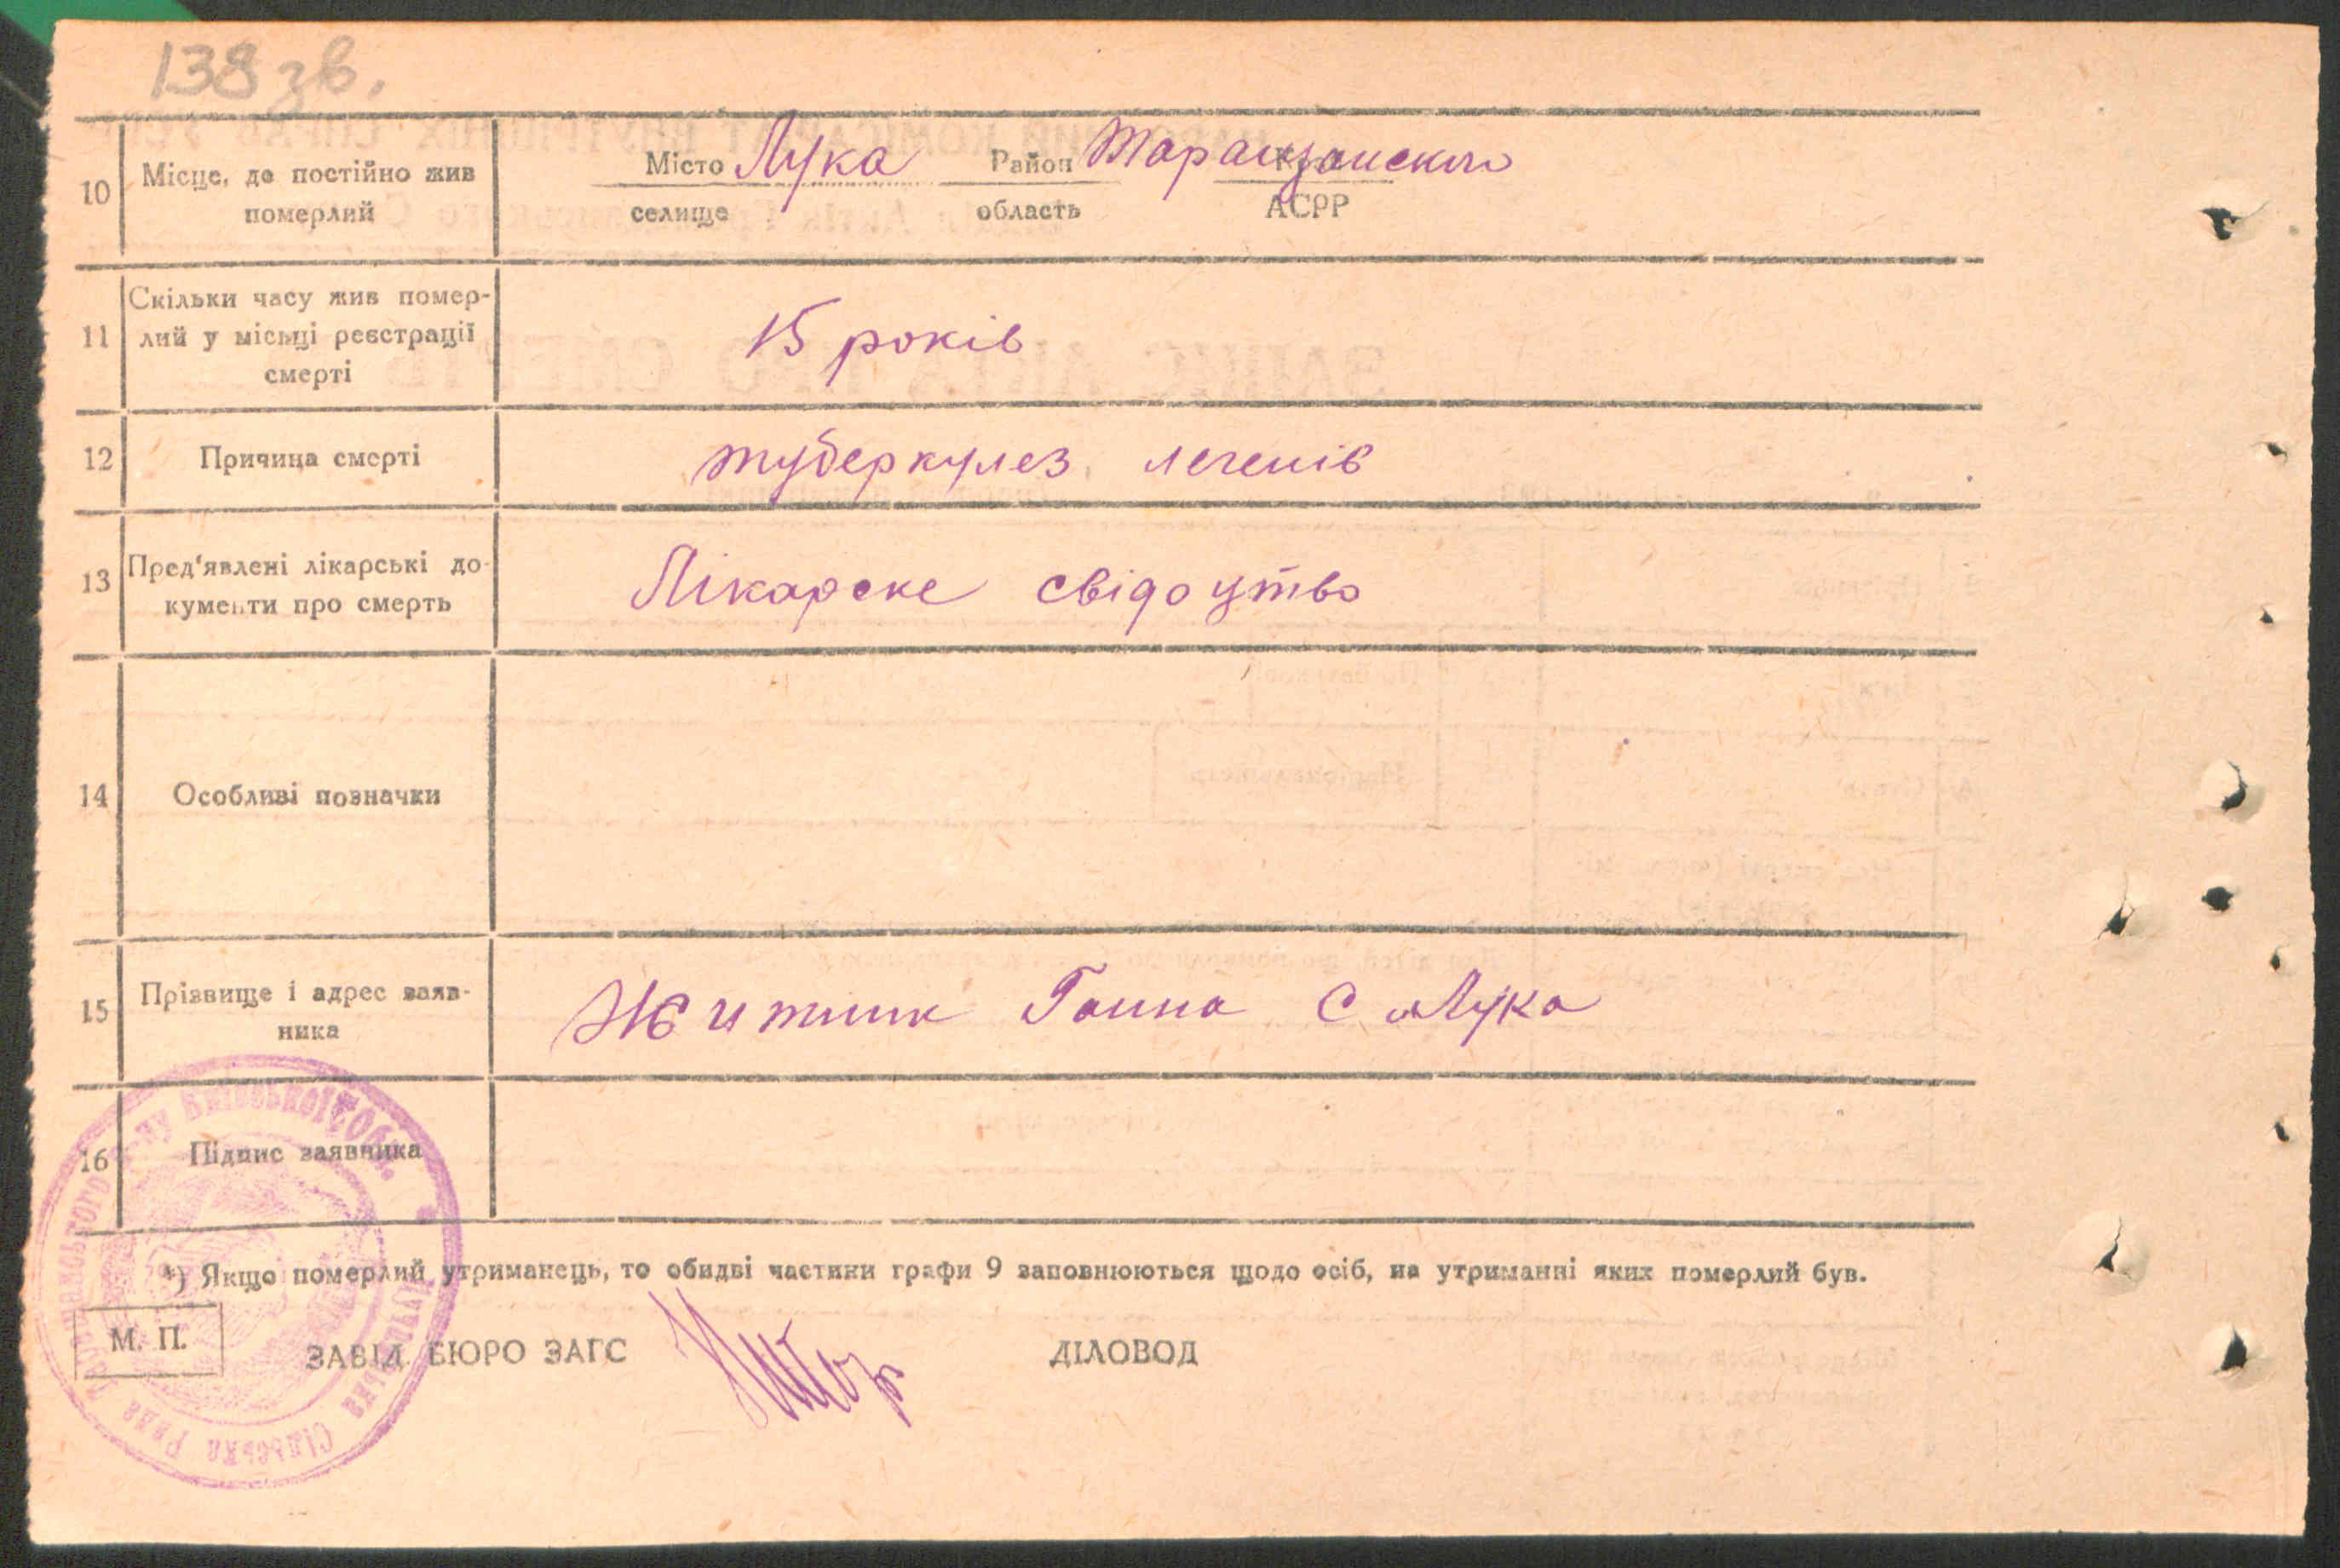 138 зв.
10 Місце, де постійно жив померлий
Місто Лука Район Таращанского
селище область АСРР
11 Скільки часу жив помер-
лий у місьці реєстрації
смерті
15 років
12 Причина смерті туберкулез легенів
13 Пред'явлені лікарські до-
кументи про смерть
Лікарске свідоцтво
14 Особливі позначки
15 Прізвище і адрес заяв-
ника
Житник Ганна С Лука
16 Підпис заявника
*) Якщо померлий утриманець, то обидві частини графи 9 заповнюються щодо осіб, на утриманні яких померлий був.
М. П.
ЗАВІД. БЮРО ЗАГС ДІЛОВОД
Київської Обл.
Сільська Рада